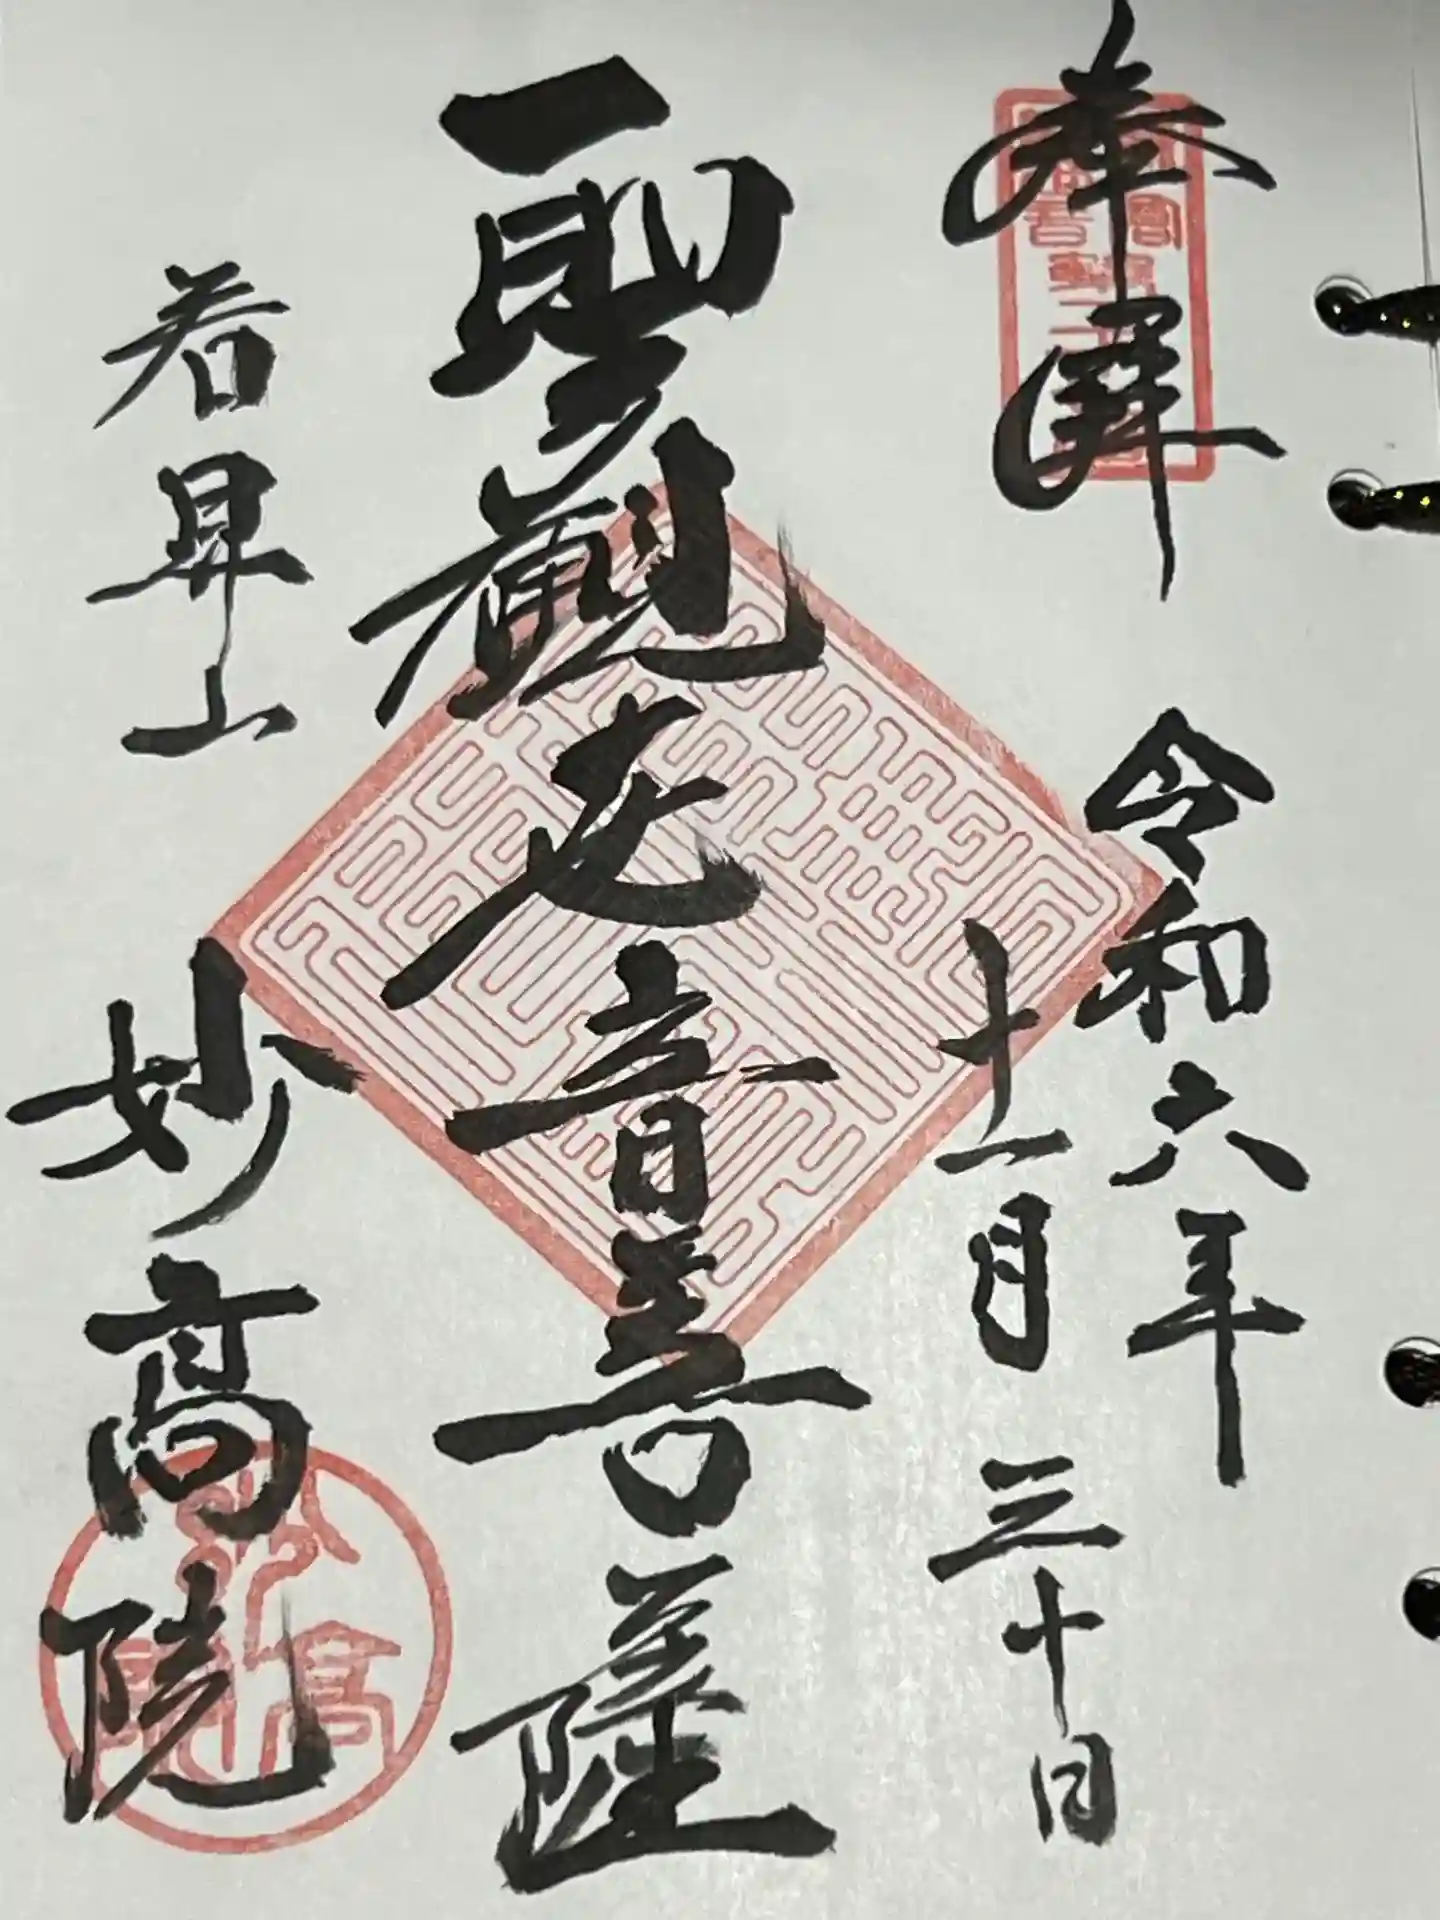 奉拝
令和六年
十一月三十日
聖觀世音菩薩
若昇山
妙高院